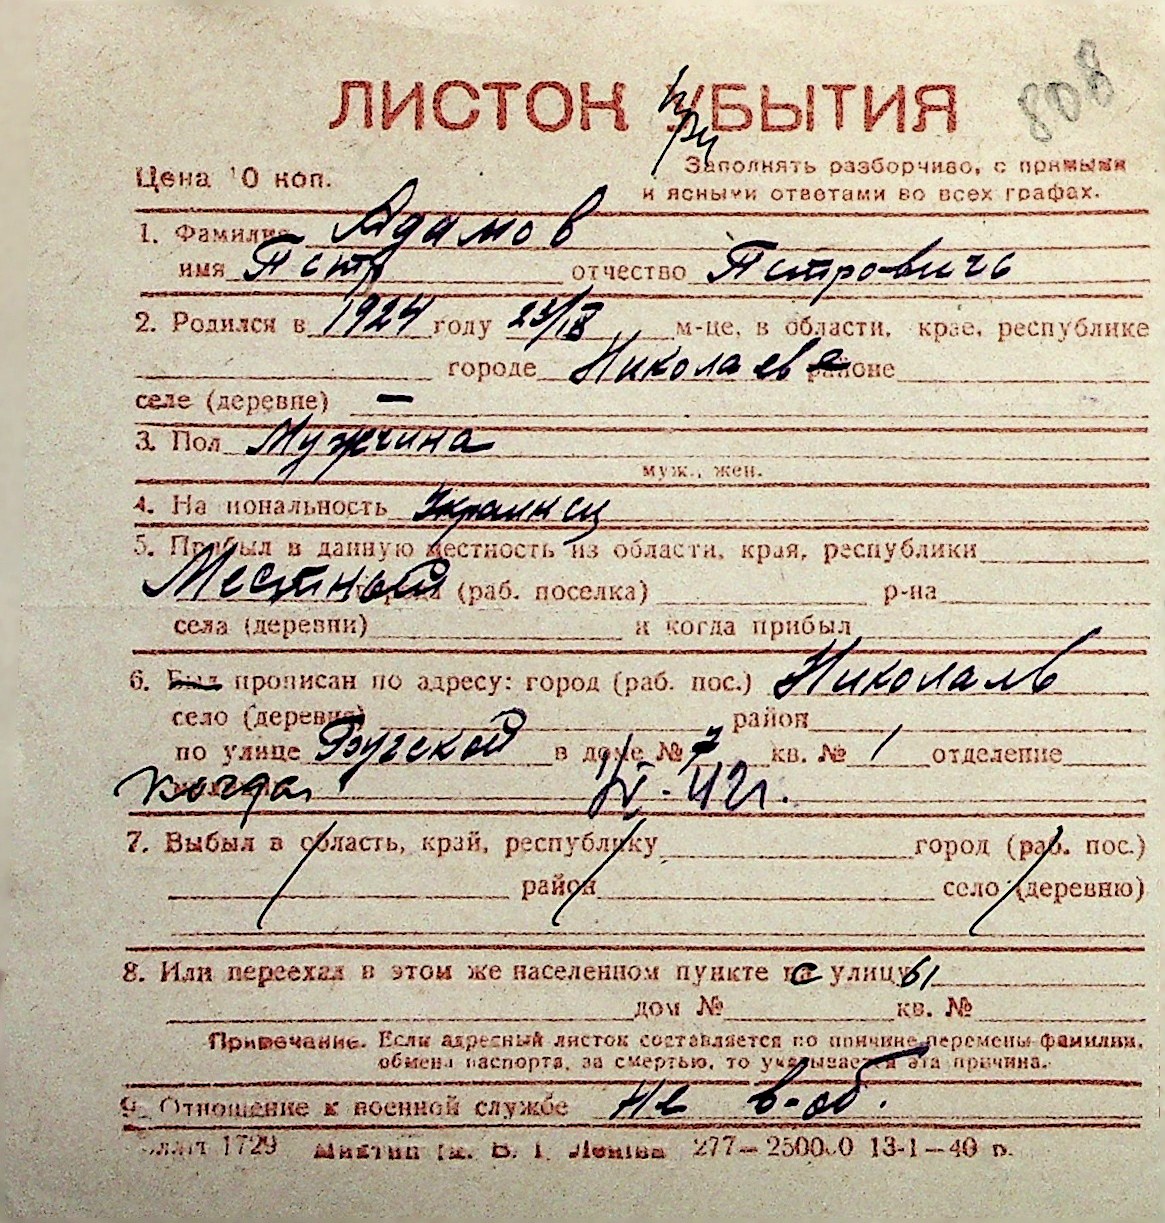 808
ЛИСТОК УБЫТИЯ
При
Цена 10 коп.
Заполнять разборчиво, с прямыми
и ясными ответами во всех графах.
1. Фамилия Адамов
имя Петр отчество Петрович
2. Родился в 1924 году м-це, в области, крае, республике
городе Николаеве районе
селе (деревне) —
3. Пол Мужчина
муж., жен.
4. Национальность Украинец
5. Прибыл в данную местность из области, края, республики
Местный города (раб. поселка) р-на
села (деревни) и когда прибыл
6. Был прописан по адресу: город (раб. пос.) Николаев
село (деревня) район
по улице Бугской в доме № 7 кв. № 1 отделение
когда 42 г.
7. Выбыл в область, край, республику город (раб. пос.)
район село (деревню)
8. Или переехал в этом же населенном пункте с улицы
дом № кв. №
Примечание. Если адресный листок составляется по причине перемены фамилии,
обмена паспорта, за смертью, то указывается эта причина.
9. Отношение к военной службе Не в-об.
1729 277—250000 13-1—40 р.